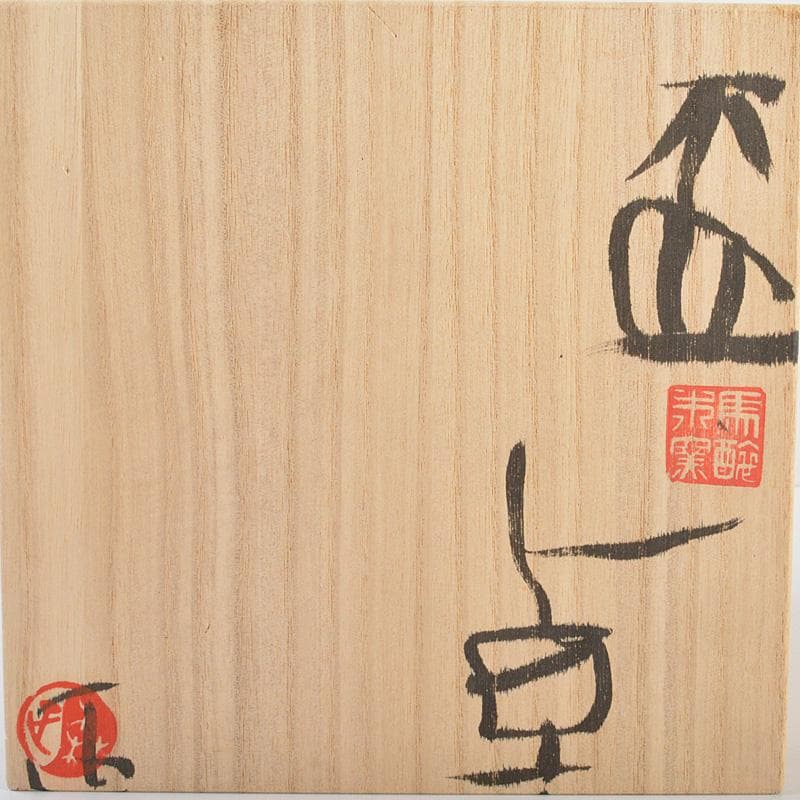 盃
馬酔木窯
卓